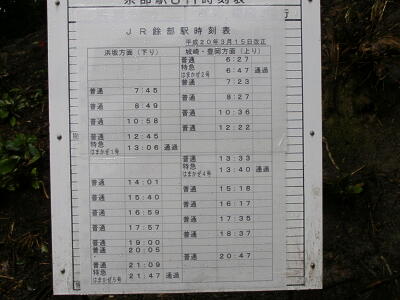 JR餘部駅時刻表
平成20年3月15日改正
浜坂方面(下り) 城崎・豊岡方面(上り)
普通 6:27
特急 はまかぜ2号 6:47 通過
普通 7:23
普通 7:45
普通 8:27
普通 8:49
普通 10:36
普通 10:58
普通 12:22
普通 12:45
特急 はまかぜ1号 13:06 通過
普通 13:33
特急 はまかぜ4号 13:40 通過
普通 14:01
普通 15:18
普通 15:40
普通 16:17
普通 16:59
普通 17:35
普通 17:57
普通 18:37
普通 19:00
普通 20:05
普通 20:47
普通 21:09
特急 はまかぜ5号 21:47 通過